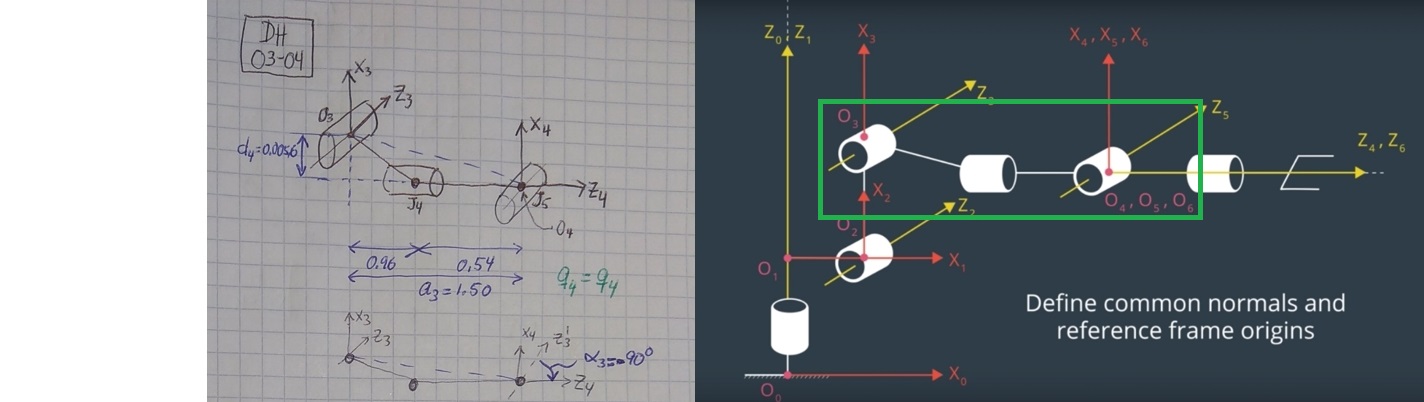 DH
03-04
X3
Z3
O3
X4
d4=0.0056
Z4
J4
J5
O4
0.96
0.54
a3=1.50
q4=q4
X3
Z3
X4
Z3'
α3=-90°
Z4
Z0 Z1
X3
X4, X5, X6
Z3
Z5
O3
Z4, Z6
X2
Z2
O4, O5, O6
O2
O1
X1
Define common normals and
reference frame origins
X0
O0